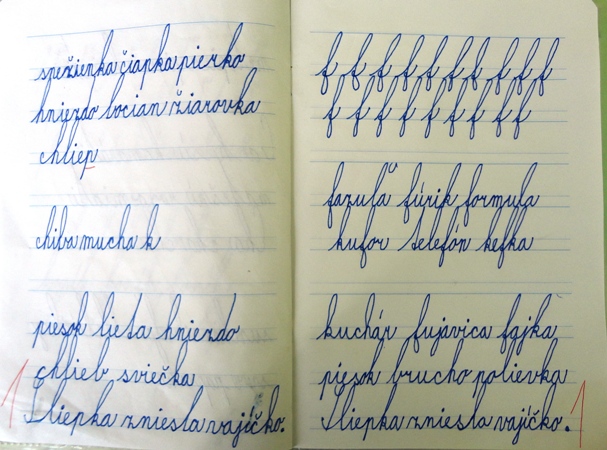 snežienka čiapka pierko
hniezdo bocian žiarovka
chliep
chiba mucha k
piesok lieta hniezdo
chlieb sviečka
Sliepka zniesla vajíčko.
1
f f f f f f f f f f
f f f f f f f f f
fazuľa fúrik formula
kufor telefón kefka
kuchár fujavica fajka
piesok brucho polievka
Sliepka zniesla vajíčko.
1